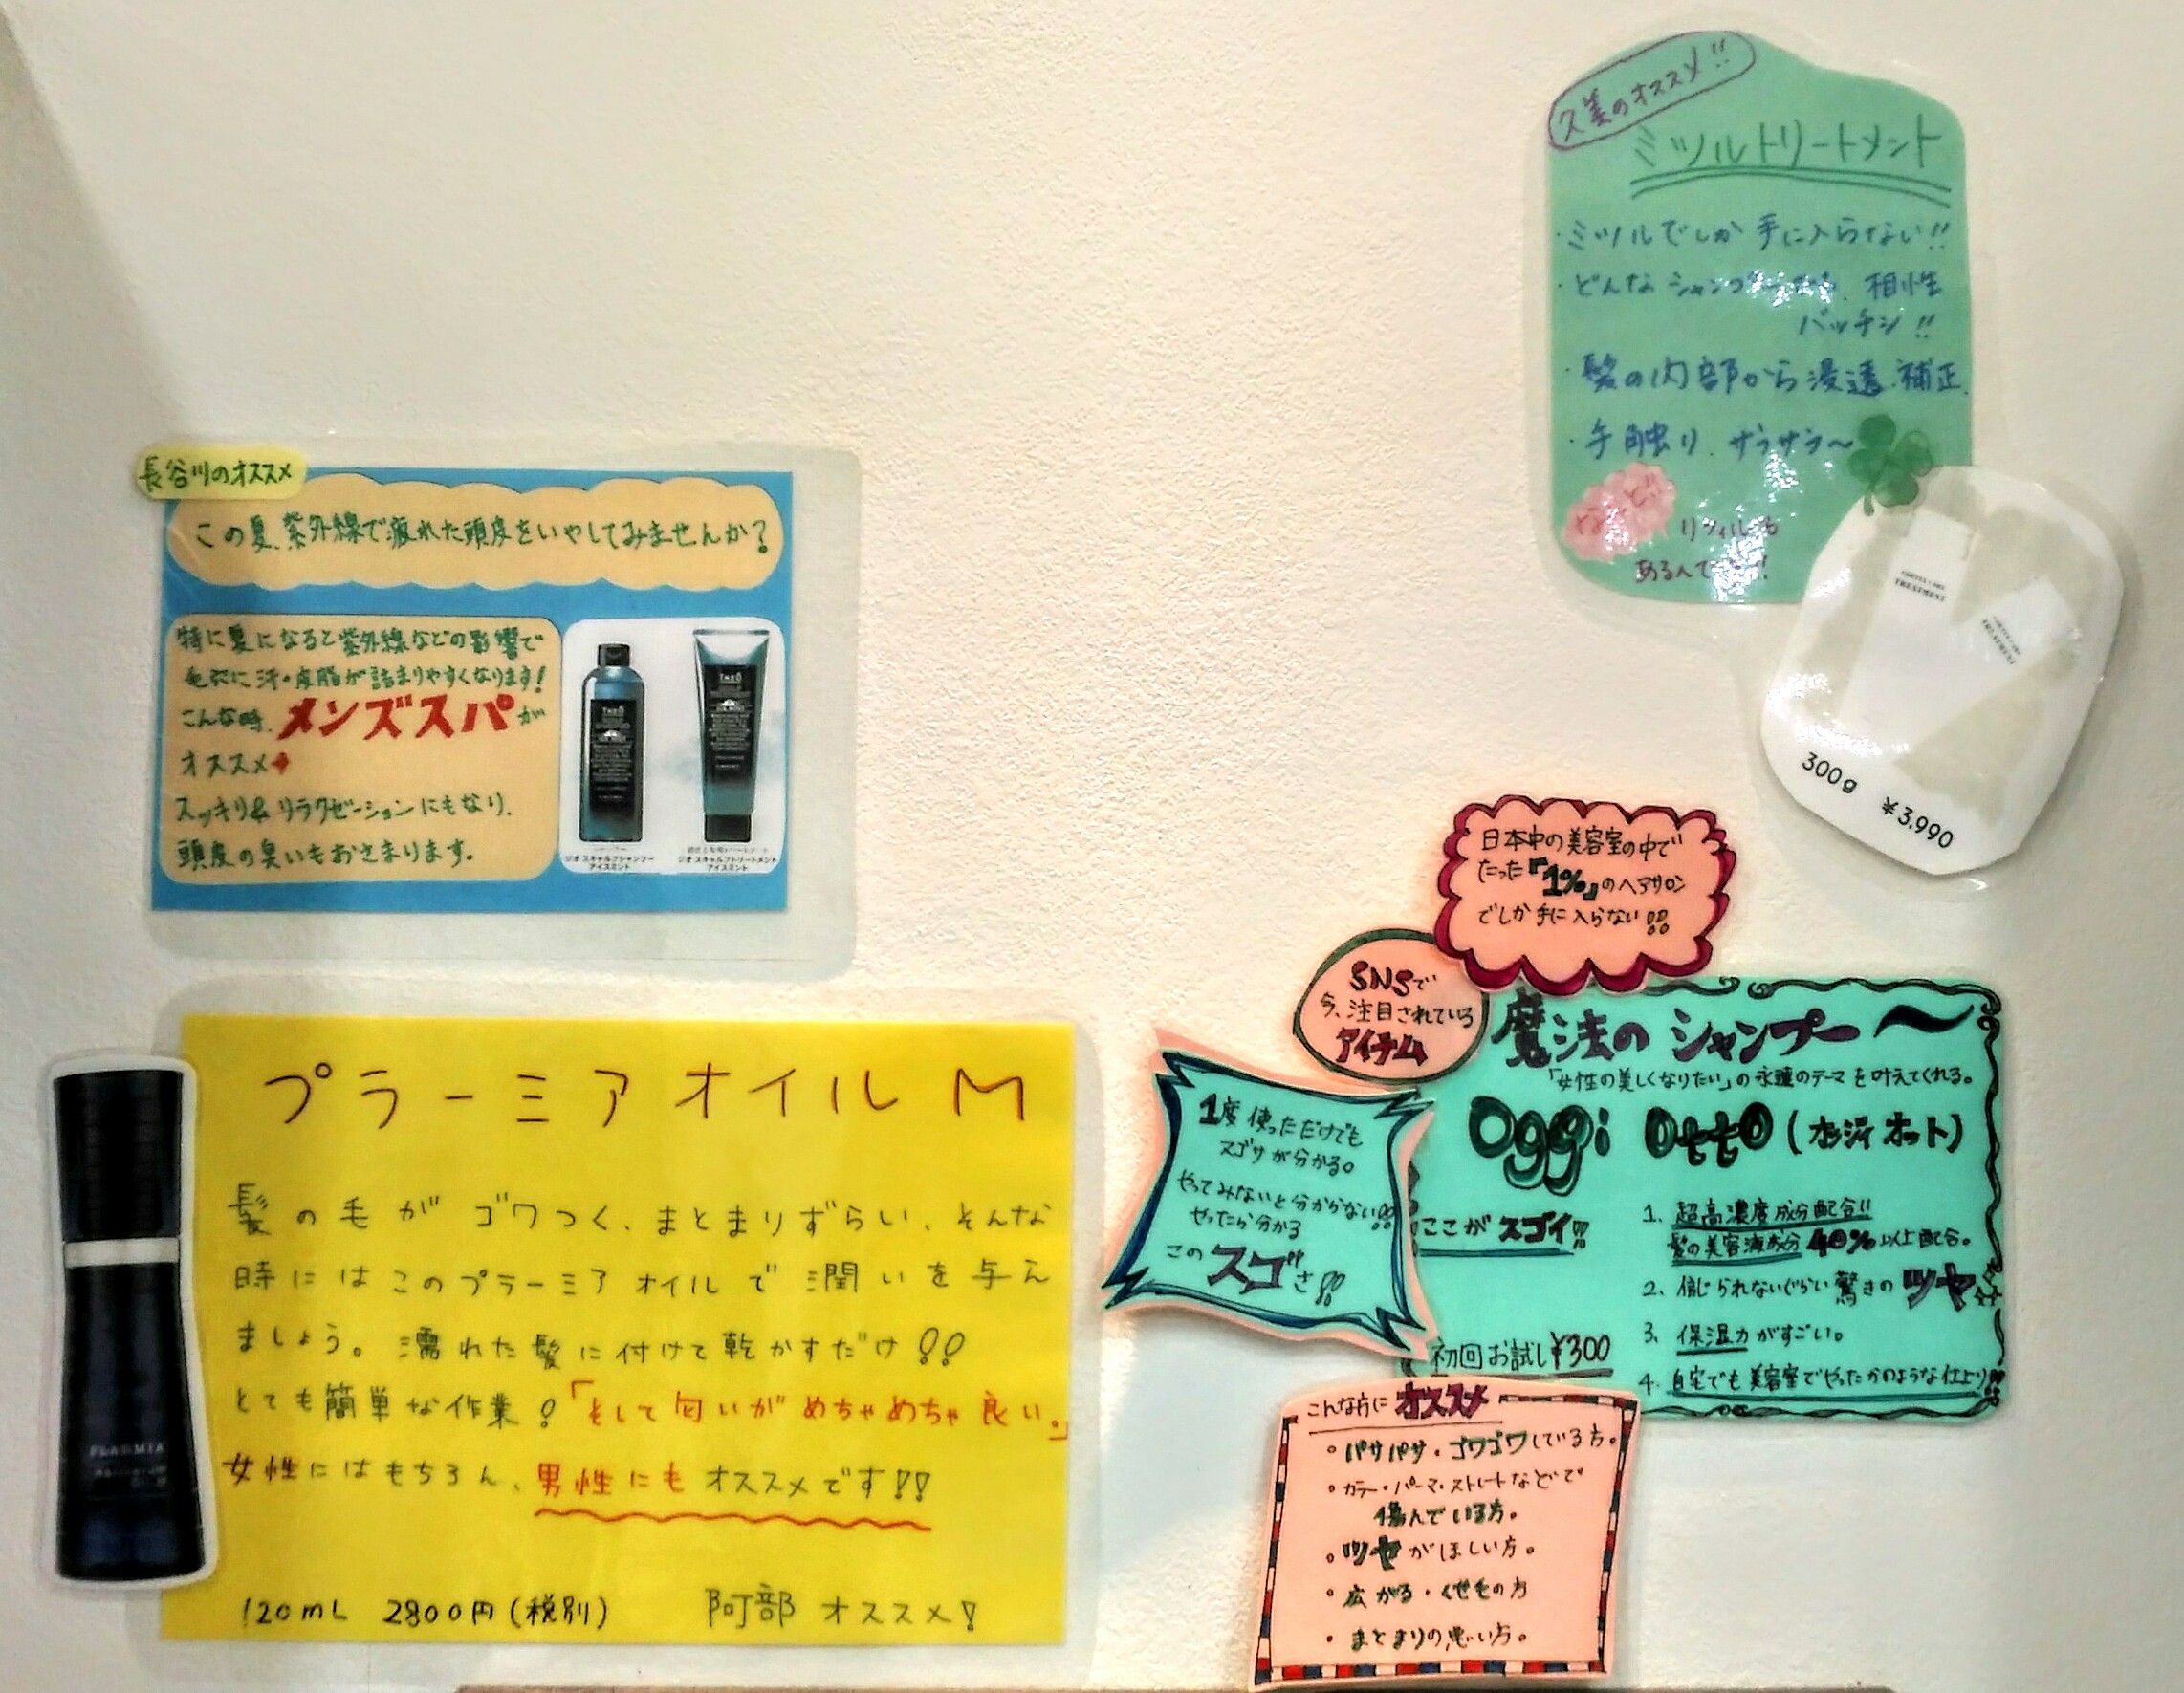 長谷川のオススメ
この夏、紫外線で疲れた頭皮をいやしてみませんか?
特に夏になると紫外線などの影響で
毛穴に汗・皮脂が詰まりやすくなります!
こんな時、メンズスパが
オススメ
スッキリ&リラクゼーションにもなり、
頭皮の臭いもおさまります。
THEO
THEO
ジオ スキャルプシャンプー
アイスミント
ジオ スキャルプトリートメント
アイスミント
プラーミアオイルM
髪の毛がゴワつく、まとまりずらい、そんな
時にはこのプラーミアオイルで潤いを与え
ましょう。濡れた髪に付けて乾かすだけ!!
とても簡単な作業!「そして匂いがめちゃめちゃ良い。」
女性にはもちろん、男性にもオススメです!!
120mL 2800円(税別) 阿部オススメ!
PLARMIA
久美のオススメ!!
ミツルトリートメント
・ミツルでしか手に入らない!!
・どんなシャンプー 相性
バッチシ!!
・髪の内部から浸透、補正
・手触り、サラサラ〜
なんと!!
リフィルも
あるんで
TREATMENT
TREATMENT
300g ¥3,990
日本中の美容室の中で
たった『1%』のヘアサロン
でしか手に入らない!!
SNSで
今、注目されている
アイテム
1度使っただけでも
スゴサが分かる。
やってみないと分からない!!
やったら分かる
このスゴさ!!
魔法のシャンプー〜
「女性の美しくなりたい」の永遠のテーマを叶えてくれる。
Oggi Otto(オッジィ オット)
ここがスゴイ!!
1. 超高濃度成分配合!!
髪の美容液成分40%以上配合。
2. 信じられないぐらい驚きのツヤ
3. 保湿力がすごい。
4. 自宅でも美容室でやったかのような仕上り!!
初回お試し¥300
こんな方にオススメ
・パサパサ・ゴワゴワしている方。
・カラー・パーマ・ストレートなどで
傷んでいる方。
・ツヤがほしい方。
・広がる・くせ毛の方
・まとまりの悪い方。